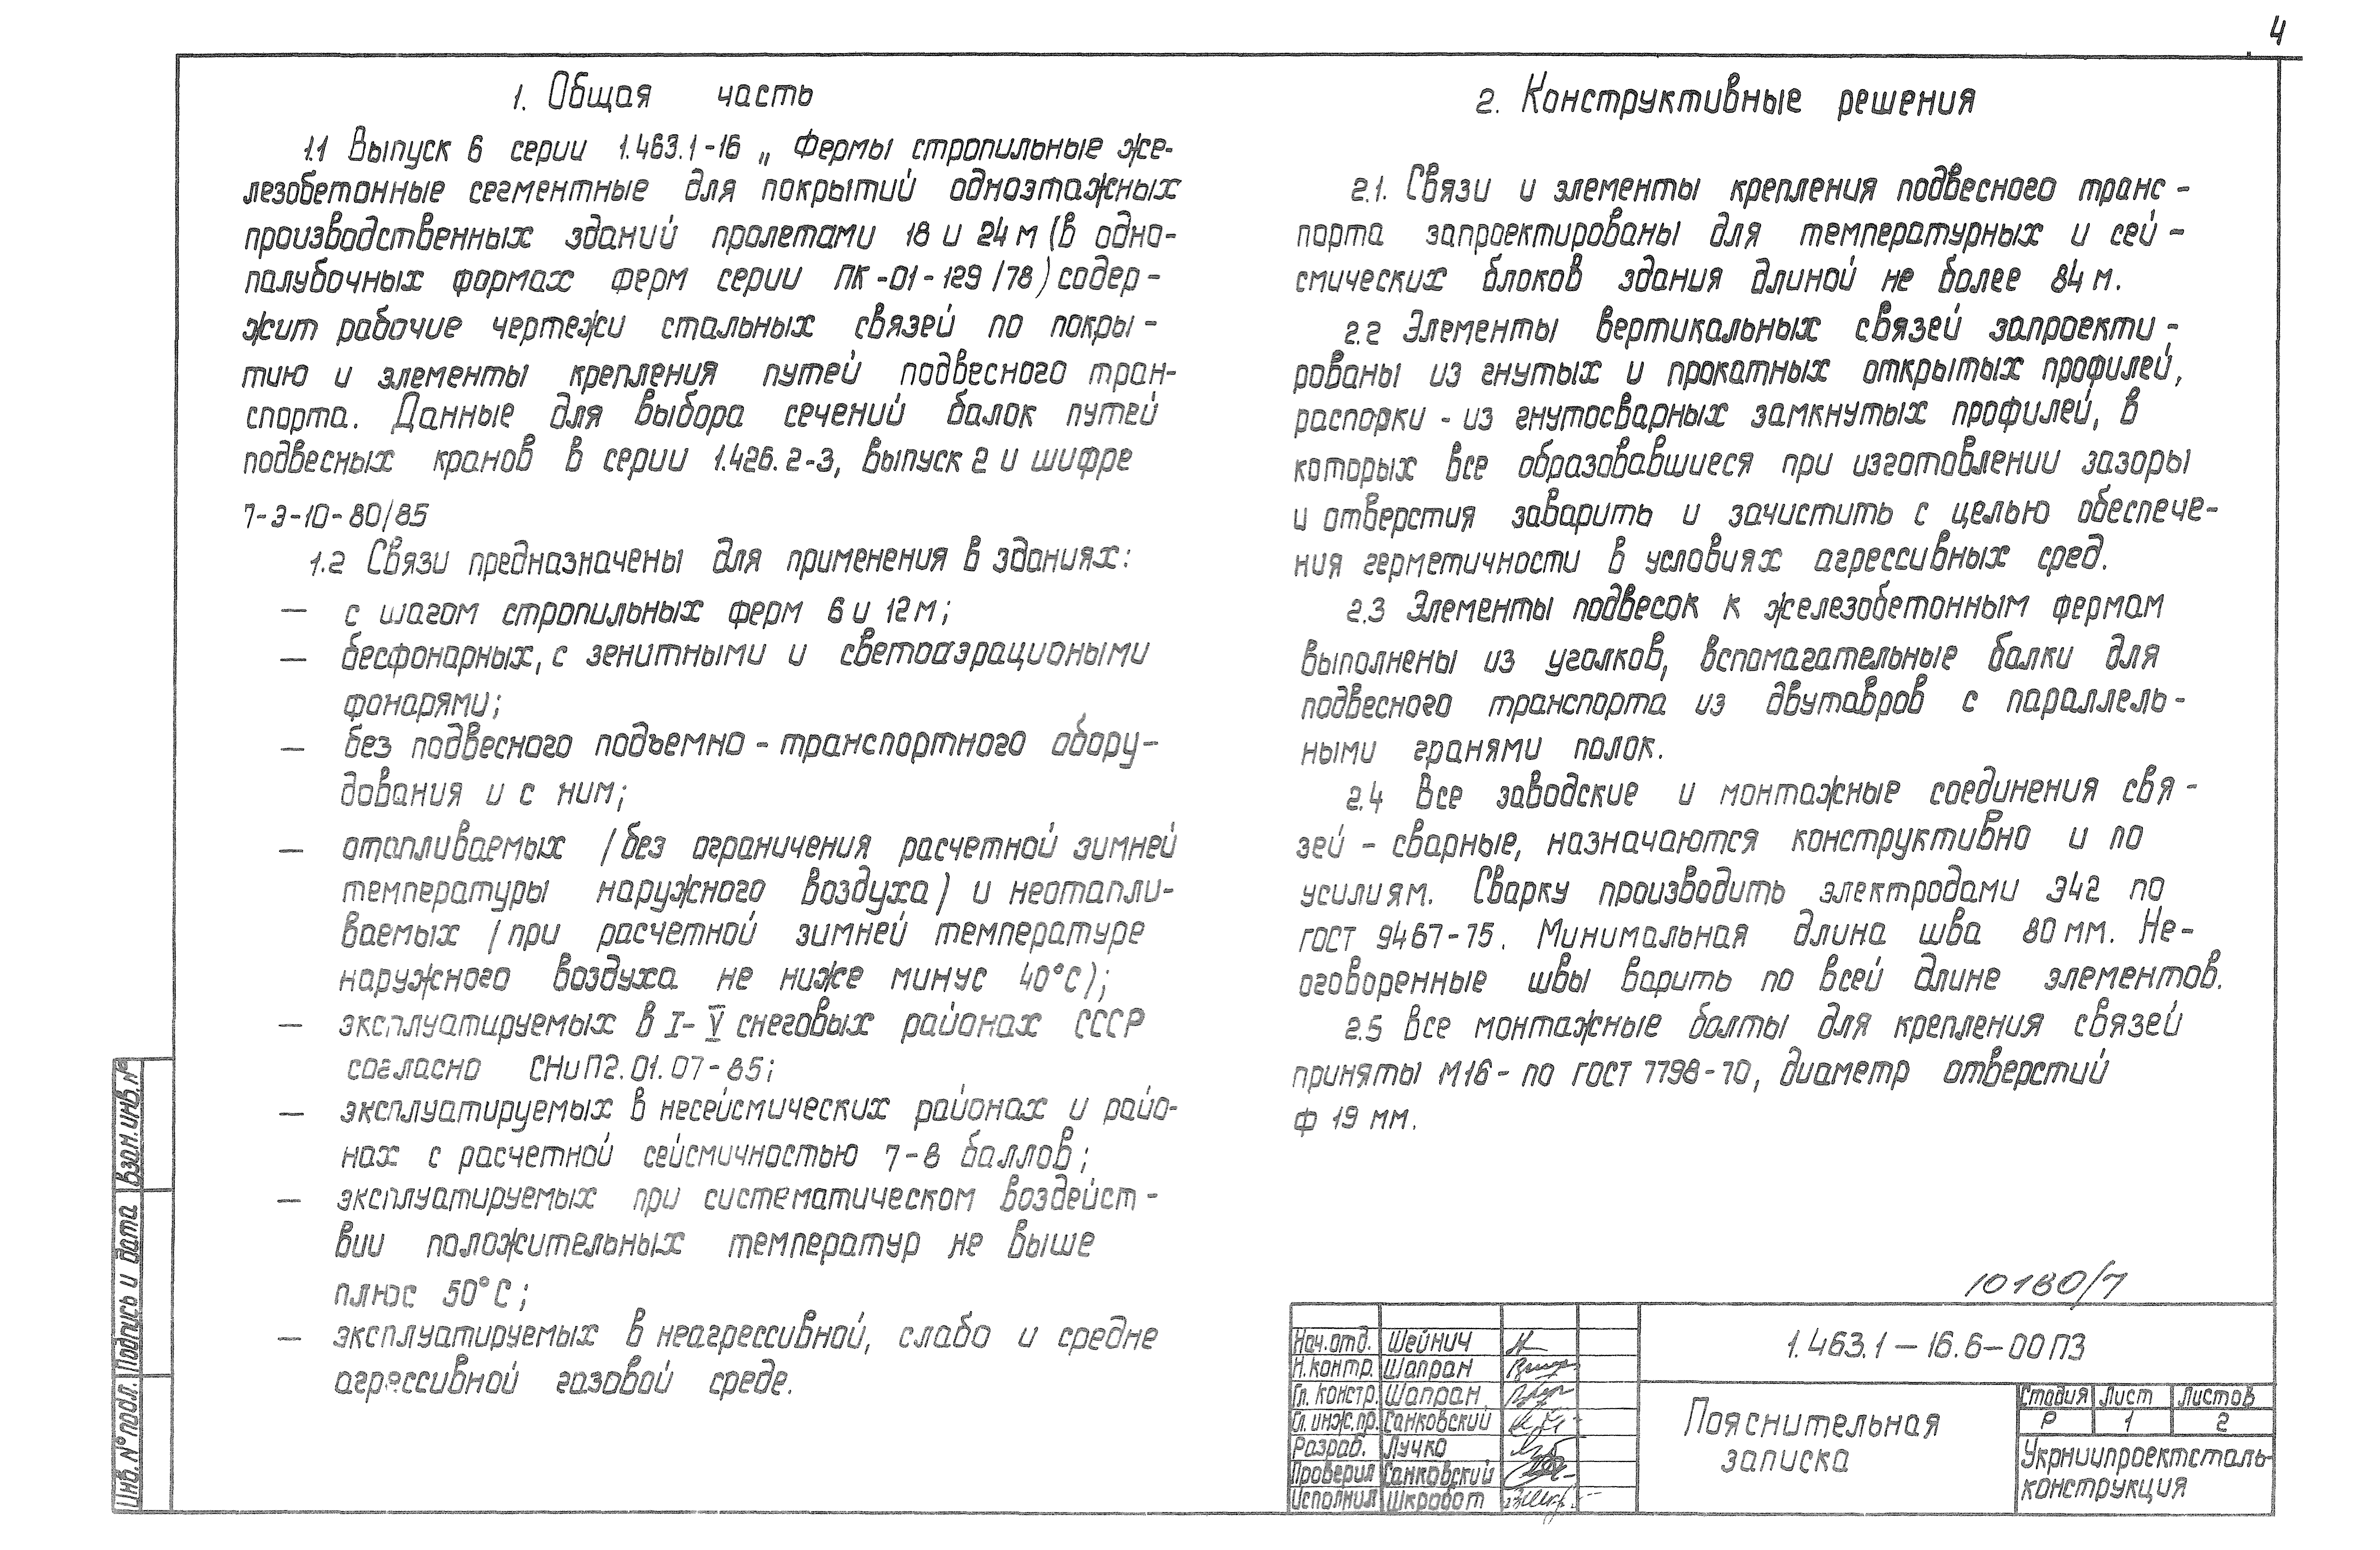 4
1. Общая часть
1.1 Выпуск 6 серии 1.463.1-16 „ Фермы стропильные же-
лезобетонные сегментные для покрытий одноэтажных
производственных зданий пролетами 18 и 24 м (в одно-
палубочных формах ферм серии ПК-01-129/78) содер-
жит рабочие чертежи стальных связей по покры-
тию и элементы крепления путей подвесного тран-
спорта. Данные для выбора сечений балок путей
подвесных кранов в серии 1.426.2-3, выпуск 2 и шифре
7-3-10-80/85
1.2 Связи предназначены для применения в зданиях:
— с шагом стропильных ферм 6 и 12 м;
— бесфонарных, с зенитными и светоаэрациоными
фонарями;
— без подвесного подъемно-транспортного обору-
дования и с ним;
— отапливаемых /без ограничения расчетной зимней
температуры наружного воздуха) и неотапли-
ваемых /при расчетной зимней температуре
наружного воздуха не ниже минус 40°С);
— эксплуатируемых в I-V снеговых районах СССР
согласно СНиП2.01.07-85;
— эксплуатируемых в несейсмических районах и райо-
нах с расчетной сейсмичностью 7-8 баллов;
— эксплуатируемых при систематическом воздейст-
вии положительных температур не выше
плюс 50°С;
— эксплуатируемых в неагрессивной, слабо и средне
агрессивной газовой среде.
2. Конструктивные решения
2.1. Связи и элементы крепления подвесного транс-
порта запроектированы для температурных и сей-
смических блоков здания длиной не более 84 м.
2.2 Элементы вертикальных связей запроекти-
рованы из гнутых и прокатных открытых профилей,
распорки - из гнутосварных замкнутых профилей, в
которых все образовавшиеся при изготовлении зазоры
и отверстия заварить и зачистить с целью обеспече-
ния герметичности в условиях агрессивных сред.
2.3 Элементы подвесок к железобетонным фермам
выполнены из уголков, вспомагательные балки для
подвесного транспорта из двутавров с параллель-
ными гранями полок.
2.4 Все заводские и монтажные соединения свя-
зей - сварные, назначаются конструктивно и по
усилиям. Сварку производить электродами Э42 по
ГОСТ 9467-75. Минимальная длина шва 80 мм. Не-
оговоренные швы варить по всей длине элементов.
2.5 Все монтажные болты для крепления связей
приняты М16 - по ГОСТ 7798-70, диаметр отверстий
ф 19 мм.
10180/7
Взам. инв. №
Подпись и дата
Инв. № подл.
Нач. отд. Шейнич
Н. контр. Шапран
Гл. констр. Шапран
Гл. инж. пр. Санковский
Разраб. Лучко
Проверил Санковский
Исполнил Шкробот
1.463.1 — 16.6 — 00 ПЗ
Пояснительная
записка
Стадия Лист Листов
Р 1 2
Укрниипроектсталь-
конструкция